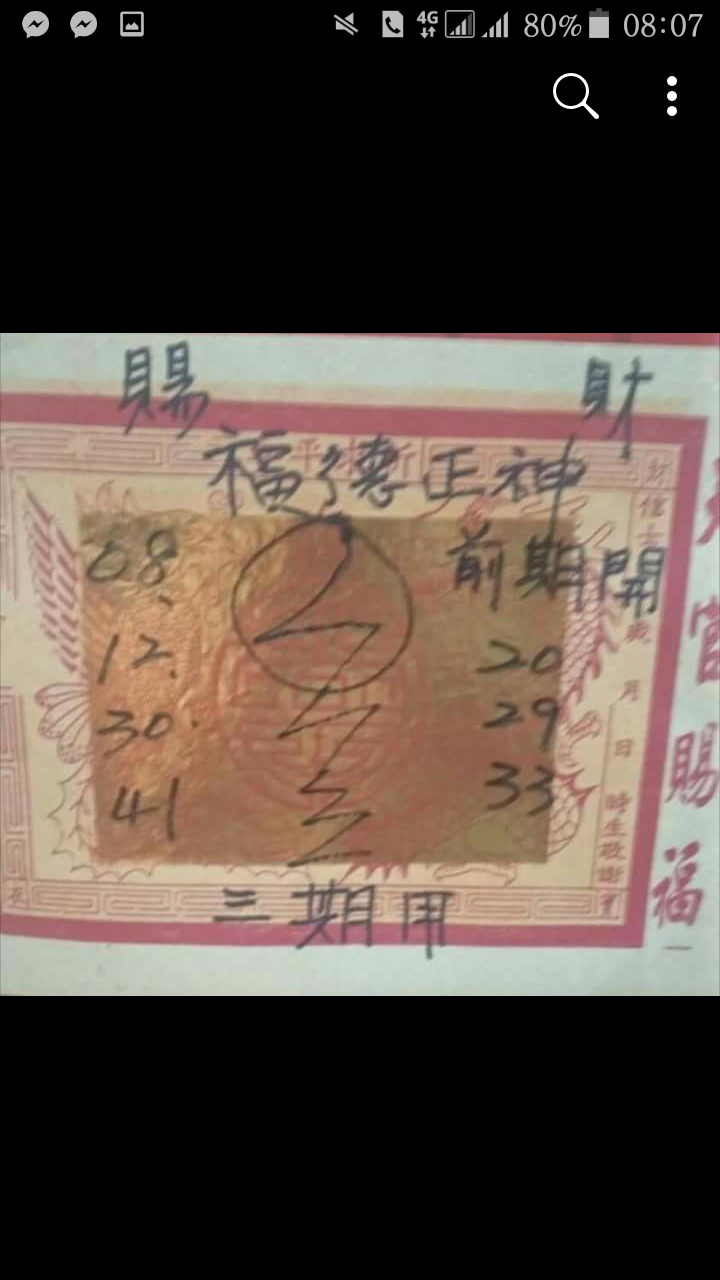 4G 80% 08:07
賜 財
福德正神
08、 前期開
12、 20
30. 29
41 33
三期用
財
信士
歲
月
日
時生敬謝
官賜福